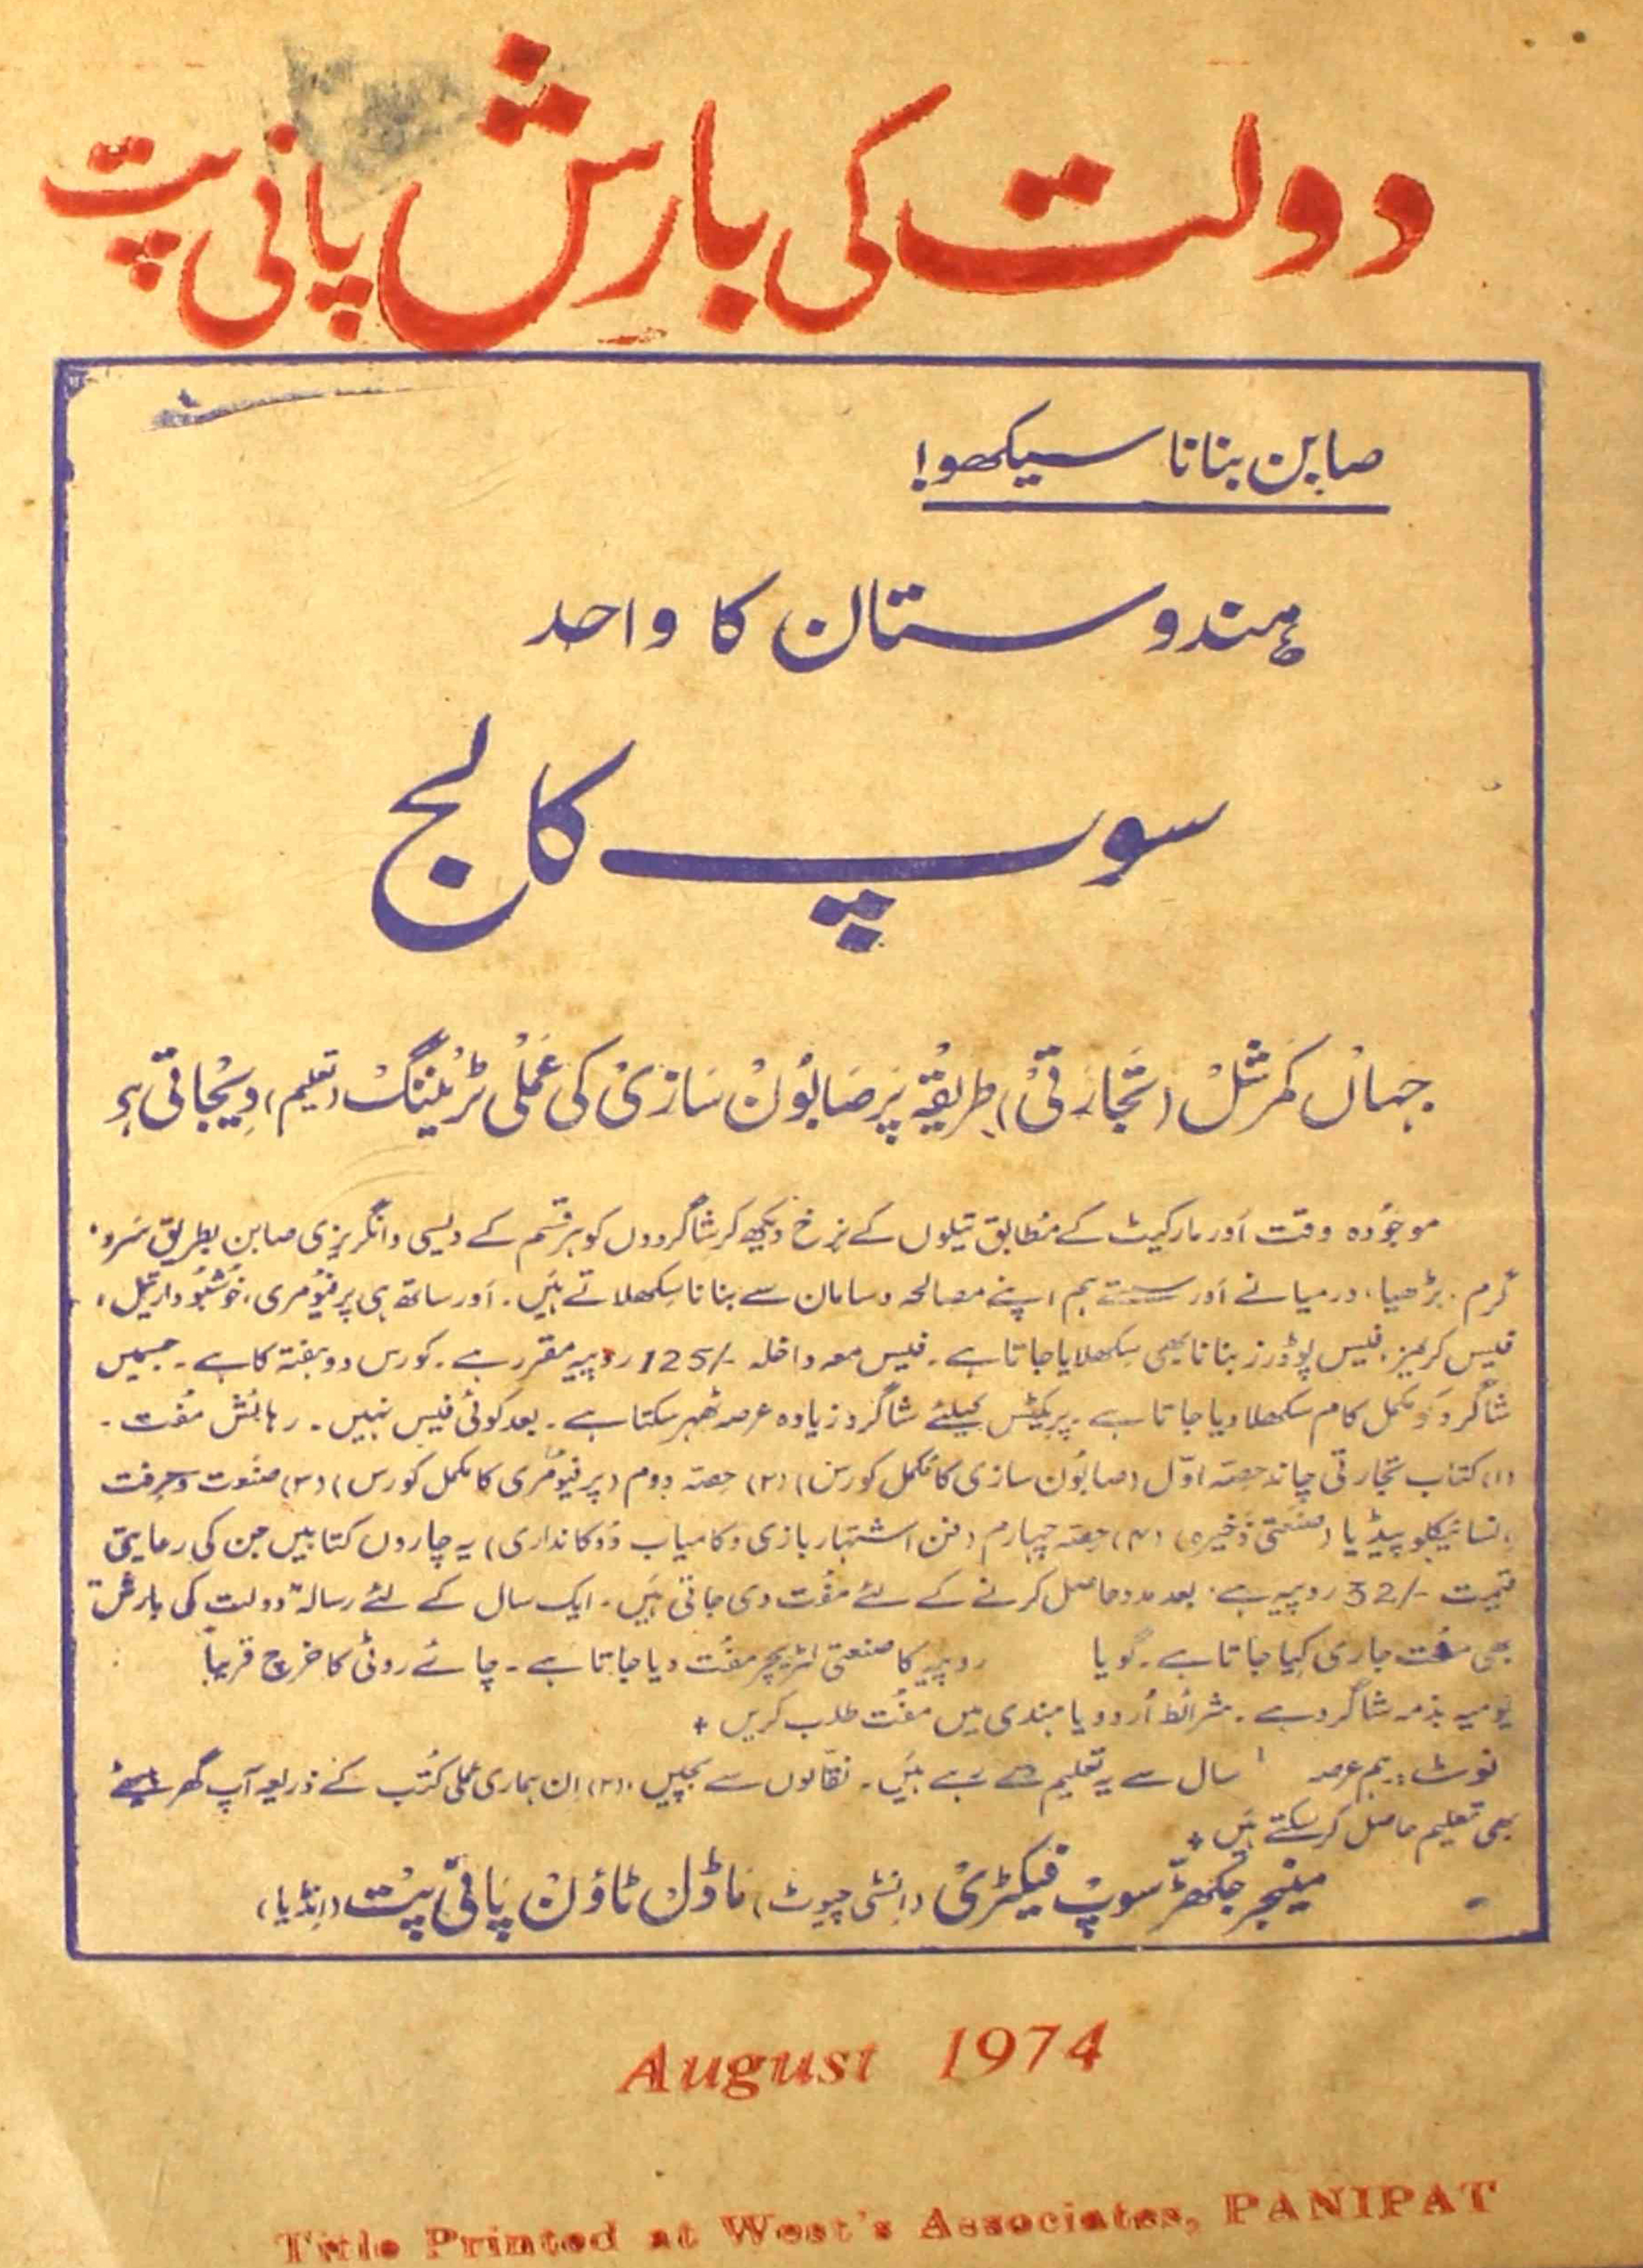 دولت کی بارش پانی پت
صابن بنانا سیکھو!
ہندوستان کا واحد
سوپ کالج
جہاں کمرشل (تجارتی) طریقہ پر صابون سازی کی عملی ٹریننگ (تعلیم) دیجاتی ہے
موجودہ وقت اور مارکیٹ کے مطابق تیلوں کے نرخ دیکھ کر شاگردوں کو ہر قسم کے دیسی و انگریزی صابن بطریق سرد،
گرم، بڑھیا، درمیانے اور سستے ہم اپنے مصالحہ و سامان سے بنانا سکھلاتے ہیں۔ اور ساتھ ہی پرفیومری، خوشبودار تیل،
فیس کریمز، فیس پوڈرز بنانا بھی سکھلایا جاتا ہے۔ فیس معہ داخلہ -/125 روپیہ مقرر ہے۔ کورس دو ہفتہ کا ہے۔ جسمیں
شاگرد کو مکمل کام سکھلا دیا جاتا ہے۔ پریکٹس کیلئے شاگرد زیادہ عرصہ ٹھہر سکتا ہے۔ بعد کوئی فیس نہیں۔ رہائش مفت۔
(۱) کتاب تجارتی چاند حصہ اوّل (صابون سازی کا مکمل کورس) (۲) حصہ دوم (پرفیومری کا مکمل کورس) (۳) صنعت و حرفت
انسائیکلو پیڈیا (صنعتی ذخیرہ) (۴) حصہ چہارم (فن اشتہار بازی و کامیاب دوکانداری) یہ چاروں کتابیں جن کی رعایتی
قیمت -/32 روپیہ ہے۔ بعد مدد حاصل کرنے کے لئے مفت دی جاتی ہیں۔ ایک سال کے لئے رسالہ "دولت کی بارش"
بھی مفت جاری کیا جاتا ہے۔ گویا روپیہ کا صنعتی لٹریچر مفت دیا جاتا ہے۔ چائے روٹی کا خرچ قریباً
یومیہ بذمہ شاگرد ہے۔ شرائط اُردو یا ہندی میں مفت طلب کریں +
نوٹ: ہم عرصہ سال سے یہ تعلیم دے رہے ہیں۔ نقالوں سے بچیں۔ (۲) اِن ہماری عملی کُتب کے ذریعہ آپ گھر بیٹھے
بھی تعلیم حاصل کر سکتے ہیں +
مینجر جکھڑ سوپ فیکٹری (انسٹی چیوٹ) ماڈل ٹاؤن پانی پت (انڈیا)
August 1974
Title Printed at West's Associates, PANIPAT